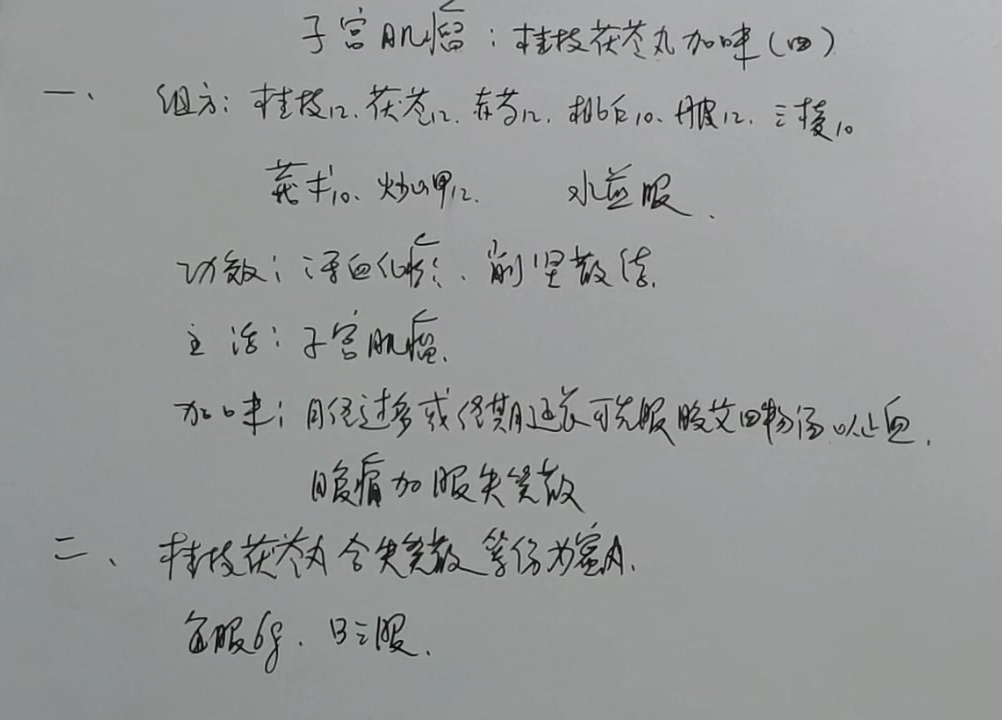 子宫肌瘤：桂枝茯苓丸加味（四）
一、 组方：桂枝12、茯苓12、赤芍12、桃仁10、丹皮12、三棱10
莪术10、炒山甲12、 水煎服、
功效：活血化瘀、削坚散结、
主治：子宫肌瘤、
加味：月经过多或经期延长可先服胶艾四物汤以止血、
腹痛加服失笑散
二、桂枝茯苓丸合失笑散等份为蜜丸、
每服6g、日三服、